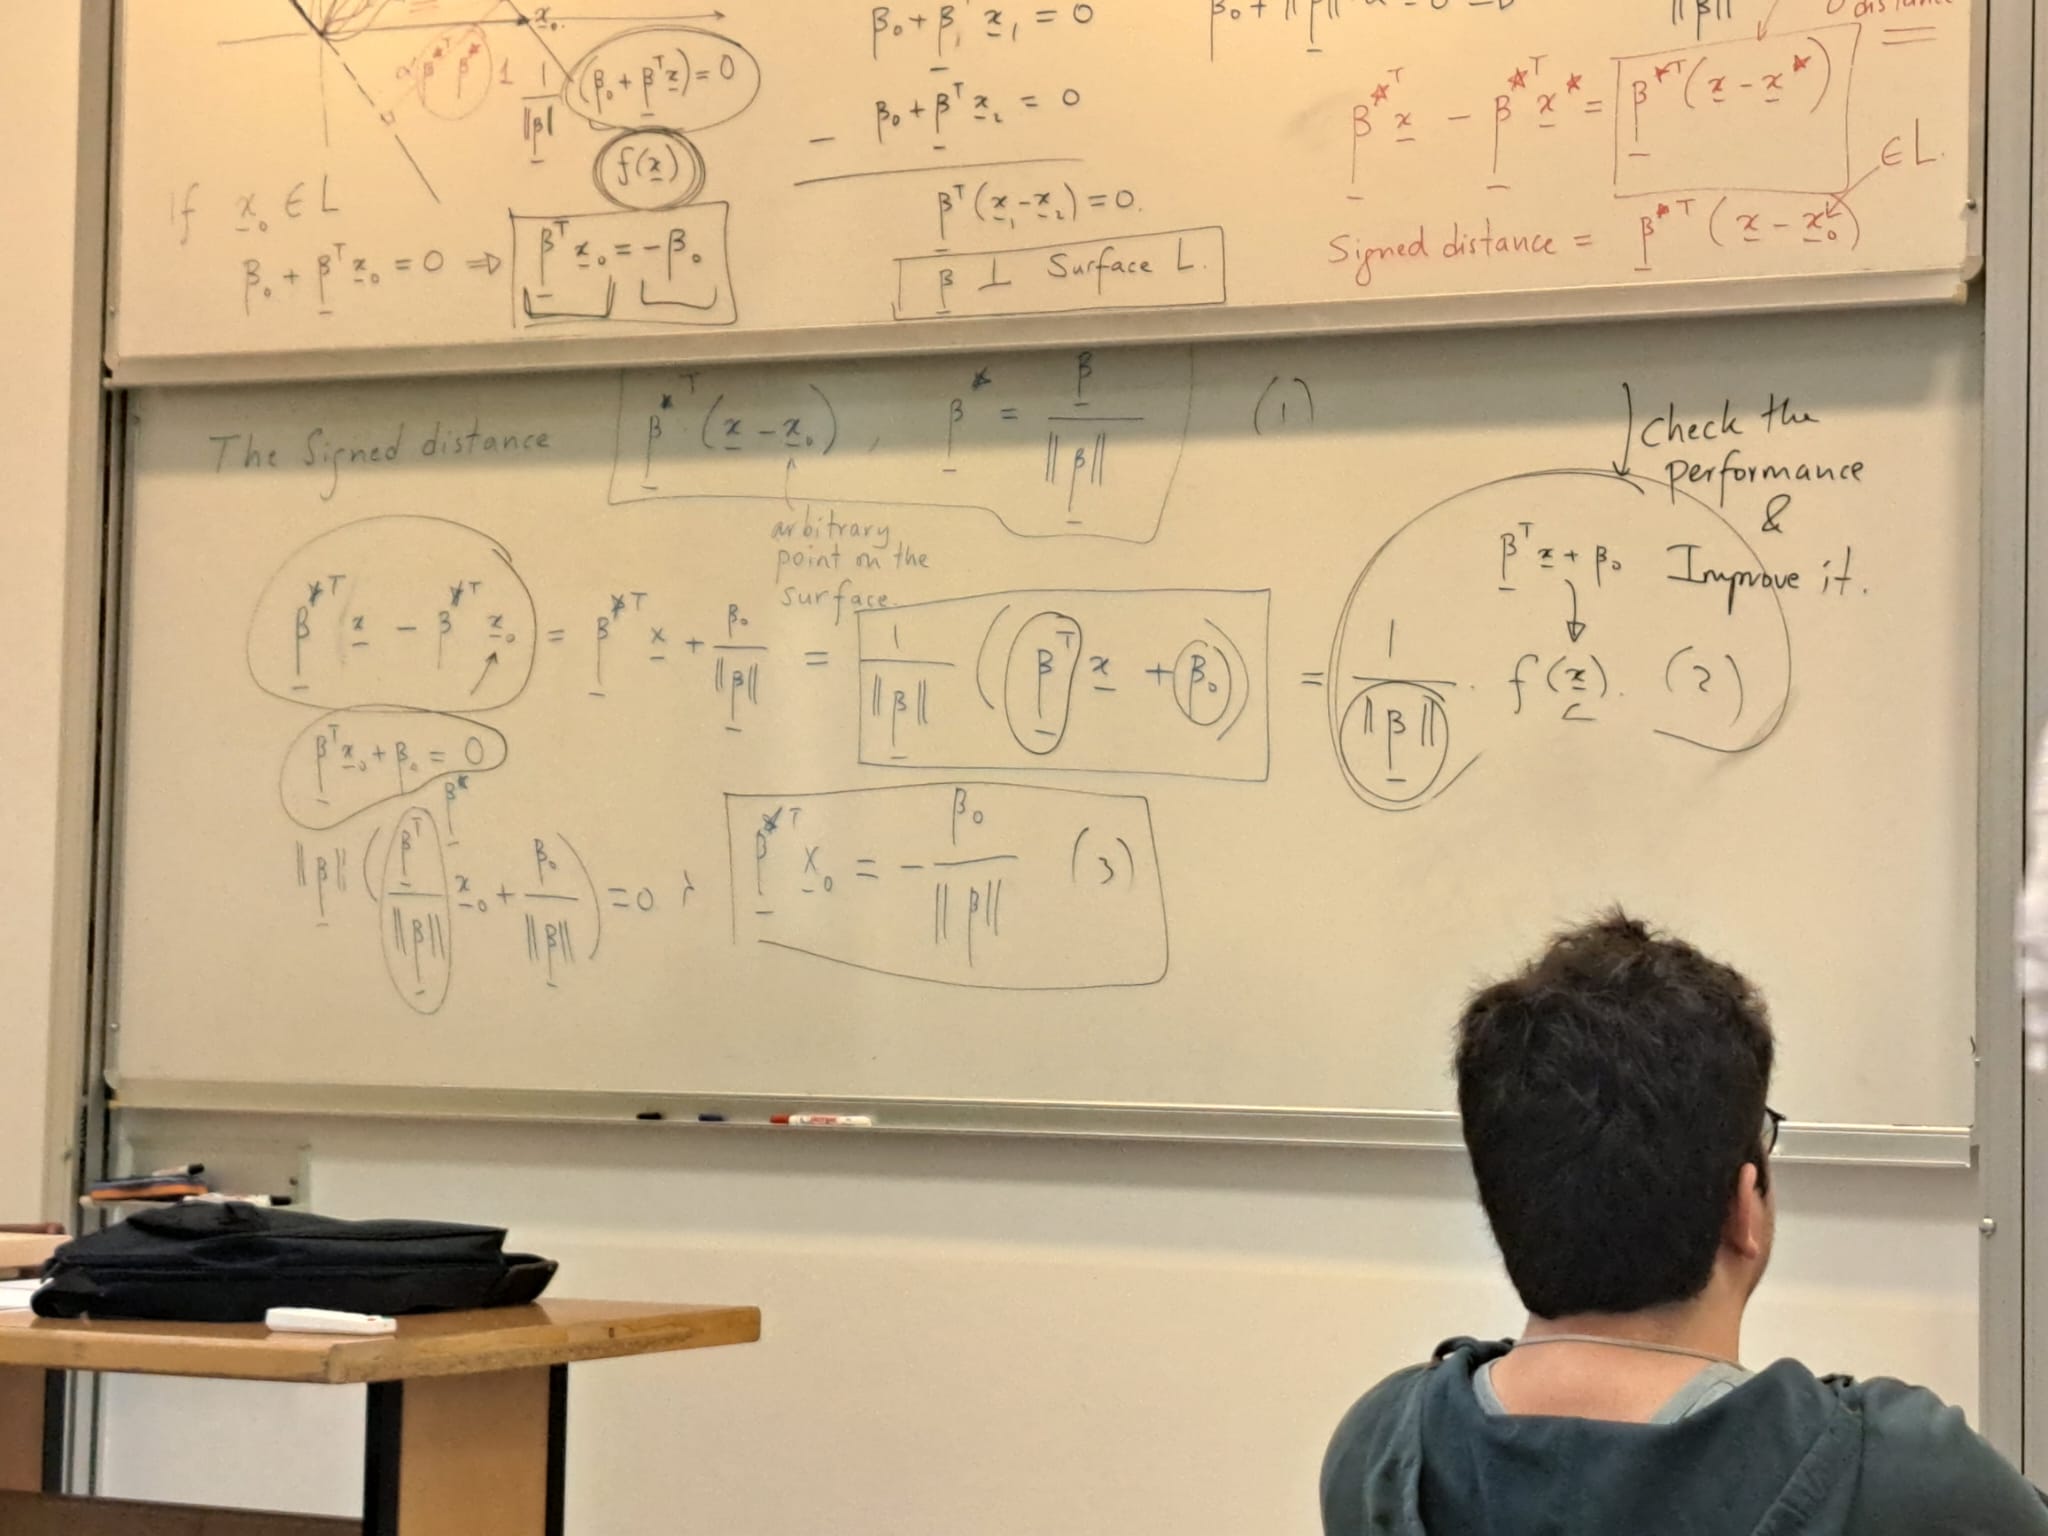 x₀.
β*ᵀ β* 1
1/‖β‖ (β₀ + βᵀx) = 0
f(x)
If x₀ ∈ L
β₀ + βᵀx₀ = 0 ⇒ βᵀx₀ = -β₀
β₀ + βᵀx₁ = 0
- β₀ + βᵀx₂ = 0
βᵀ(x₁ - x₂) = 0.
β ⊥ Surface L.
‖β‖
distance
β*ᵀx - β*ᵀx* = β*ᵀ(x - x*)
∈ L.
Signed distance = β*ᵀ(x - x₀)
The Signed distance β*ᵀ(x - x₀), β* = β/‖β‖ (1)
arbitrary
point on the
surface.
check the
performance
&
Improve it.
βᵀx + β₀
β*ᵀx - β*ᵀx₀ = β*ᵀx + β₀/‖β‖ = 1/‖β‖ (βᵀx + β₀) = 1/‖β‖ · f(x). (2)
βᵀx₀ + β₀ = 0
β*
‖β‖ (βᵀ/‖β‖ x₀ + β₀/‖β‖) = 0
β*ᵀx₀ = - β₀/‖β‖ (3)